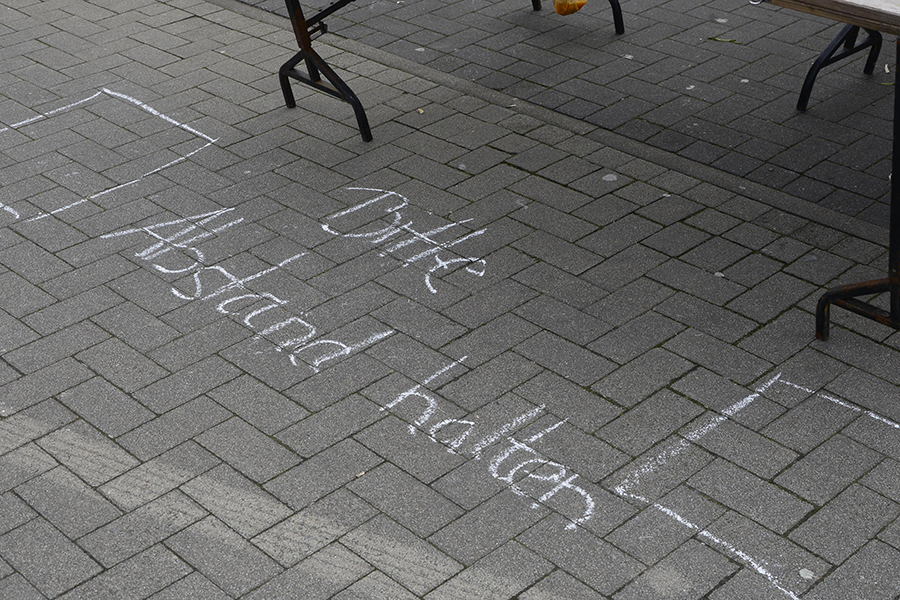 Bitte
Abstand halten